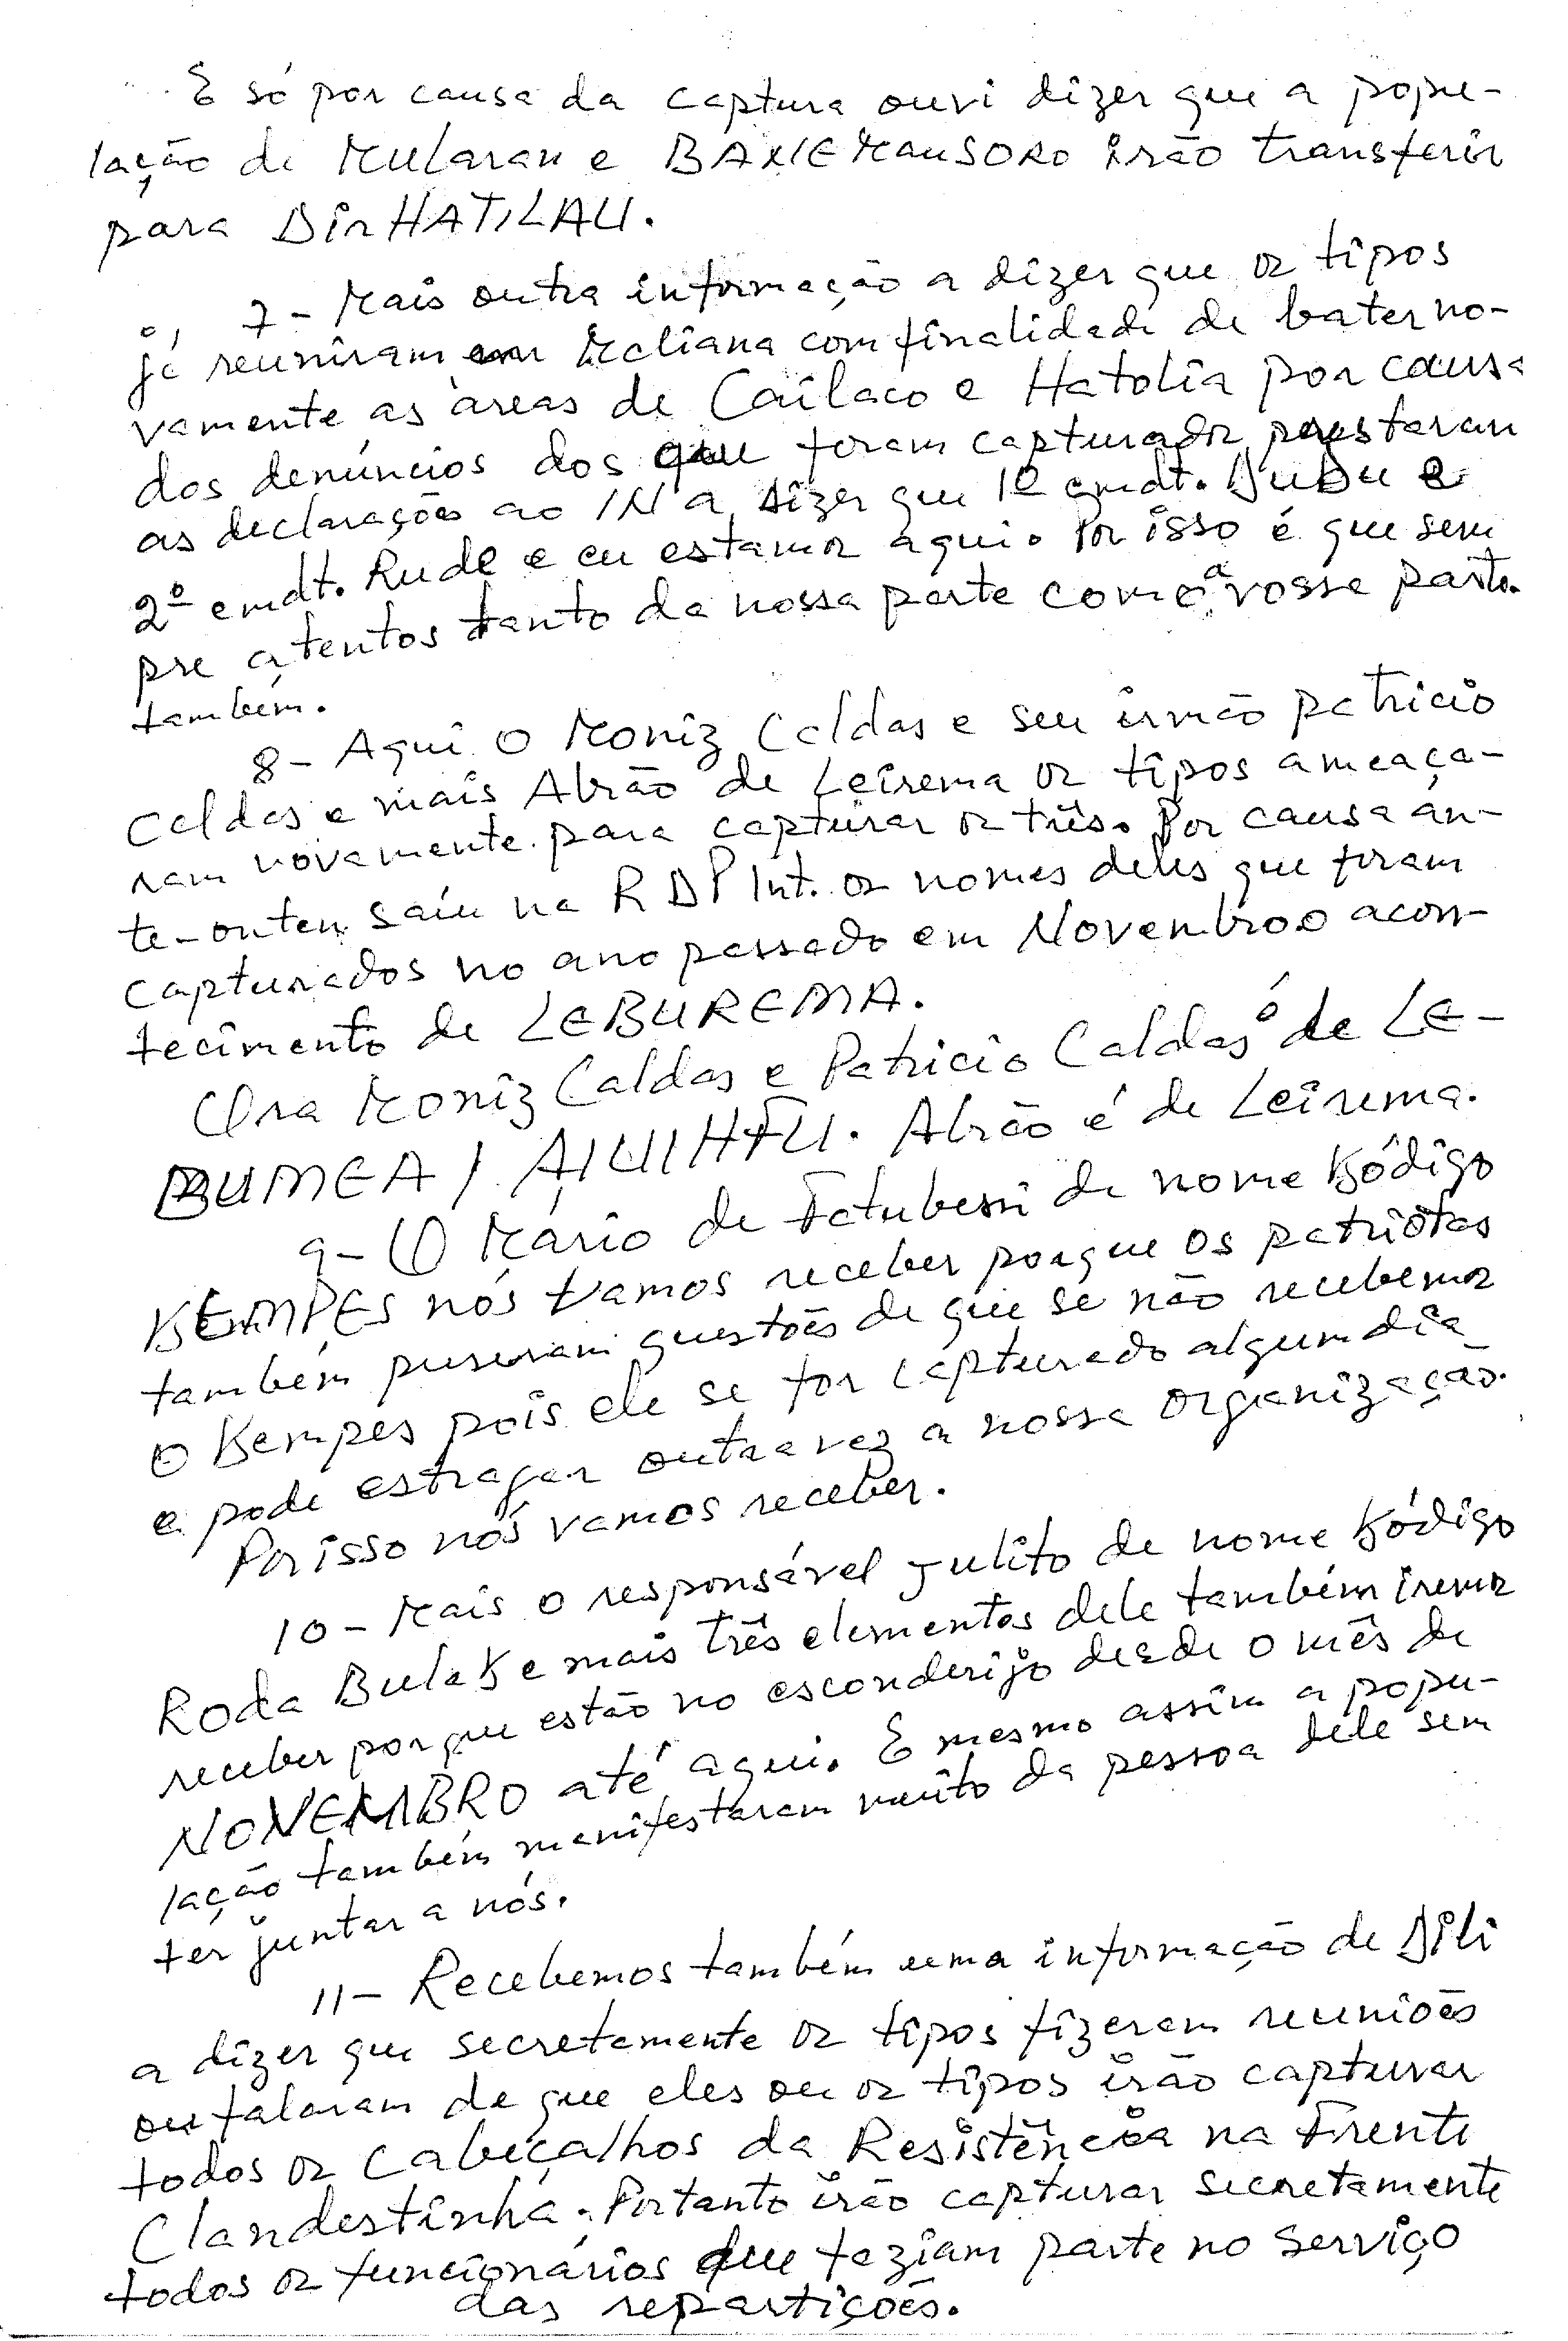 E só por causa da captura ouvi dizer que a popu-
lação de Mularau e BAXIEMAUSORO irão transferir
para DirHATILAU.
7 - Mais outra informação a dizer que os tipos
já reuniram em Maliana com finalidade de bater no-
vamente as áreas de Cailaco e Hatolia por causa
dos denúncios dos que foram capturados prestaram
as declarações ao IN a dizer que 1º cmdt. DUDU e
2º cmdt. Rude e eu estamos aqui. Por isso é que sem
pre atentos tanto da nossa parte como a vossa parte.
também.
8 - Aqui o Moniz Caldas e seu irmão patricio
Caldas e mais Abrão de Leirema os tipos ameaça-
ram novamente para capturar os três. Por causa an-
te-onten saíu na RDP Int. os nomes deles que foram
capturados no ano passado em Novembro o acon-
tecimento de LEBUREMA.
Ora Moniz Caldas e Patricio Caldas é de LE-
BUMEA / Abrão é de Leirema.
9 - O Mário de Fatubessi de nome Kódigo
KEMPES nós vamos receber porque os patriotas
também puseram questões de que se não recebemos
o Kempes pois ele se for capturado algum dia
e pode estragar outra vez a nossa organização.
Por isso nós vamos receber.
10 - Mais o responsável Julito de nome Kódigo
Roda Bulak e mais três elementos dele também iremos
receber porque estão no esconderijo desde o mês de
NOVEMBRO até aqui. E mesmo assim a popu-
lação também manifestaram muito da pessoa dele sem
ter juntar a nós.
11 - Recebemos também uma informação de Dili
a dizer que secretamente os tipos fizeram reuniões
ou falaram de que eles ou os tipos irão capturar
todos os Cabeçalhos da Resistência na Frente
Clandestinha. Portanto irão capturar secretamente
todos os funcionários que faziam parte no serviço
das repartições.